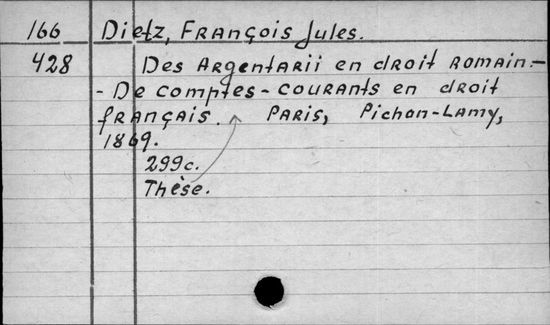 166 Dietz, François Jules.
428 Des Argentarii en droit romain.-
- De comptes-courants en droit
français. Paris, Pichon-Lamy,
1869.
299c.
Thèse.